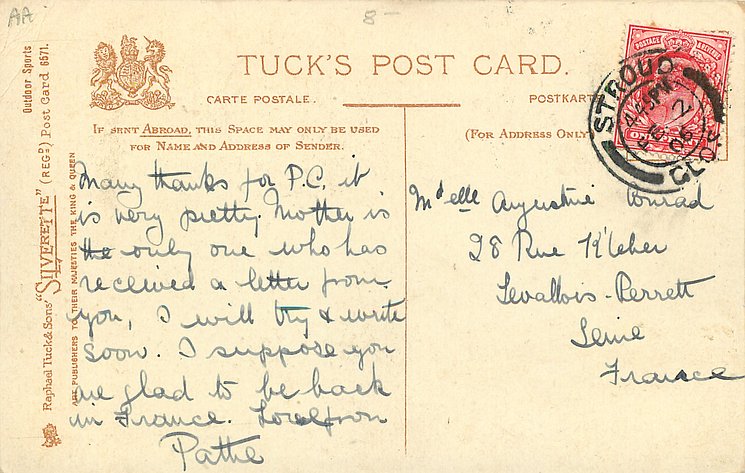 AA
8-
TUCK'S POST CARD.
CARTE POSTALE.
POSTKARTE
IF SENT ABROAD, THIS SPACE MAY ONLY BE USED
FOR NAME AND ADDRESS OF SENDER.
(FOR ADDRESS ONLY
POSTAGE
STROUD
GLOS
Raphael Tuck & Sons' "SILVERETTE" (REGD) Post Card 6571.
Outdoor Sports
ART PUBLISHERS TO THEIR MAJESTIES THE KING & QUEEN
Many thanks for P.C. it
is very pretty. Mother is
the only one who has
received a letter from
you, I will try & write
soon. I suppose you
are glad to be back
in France. Love from
Mdelle Augustine Conrad
28 Rue Kleber
Levallois-Perrett
Seine
France